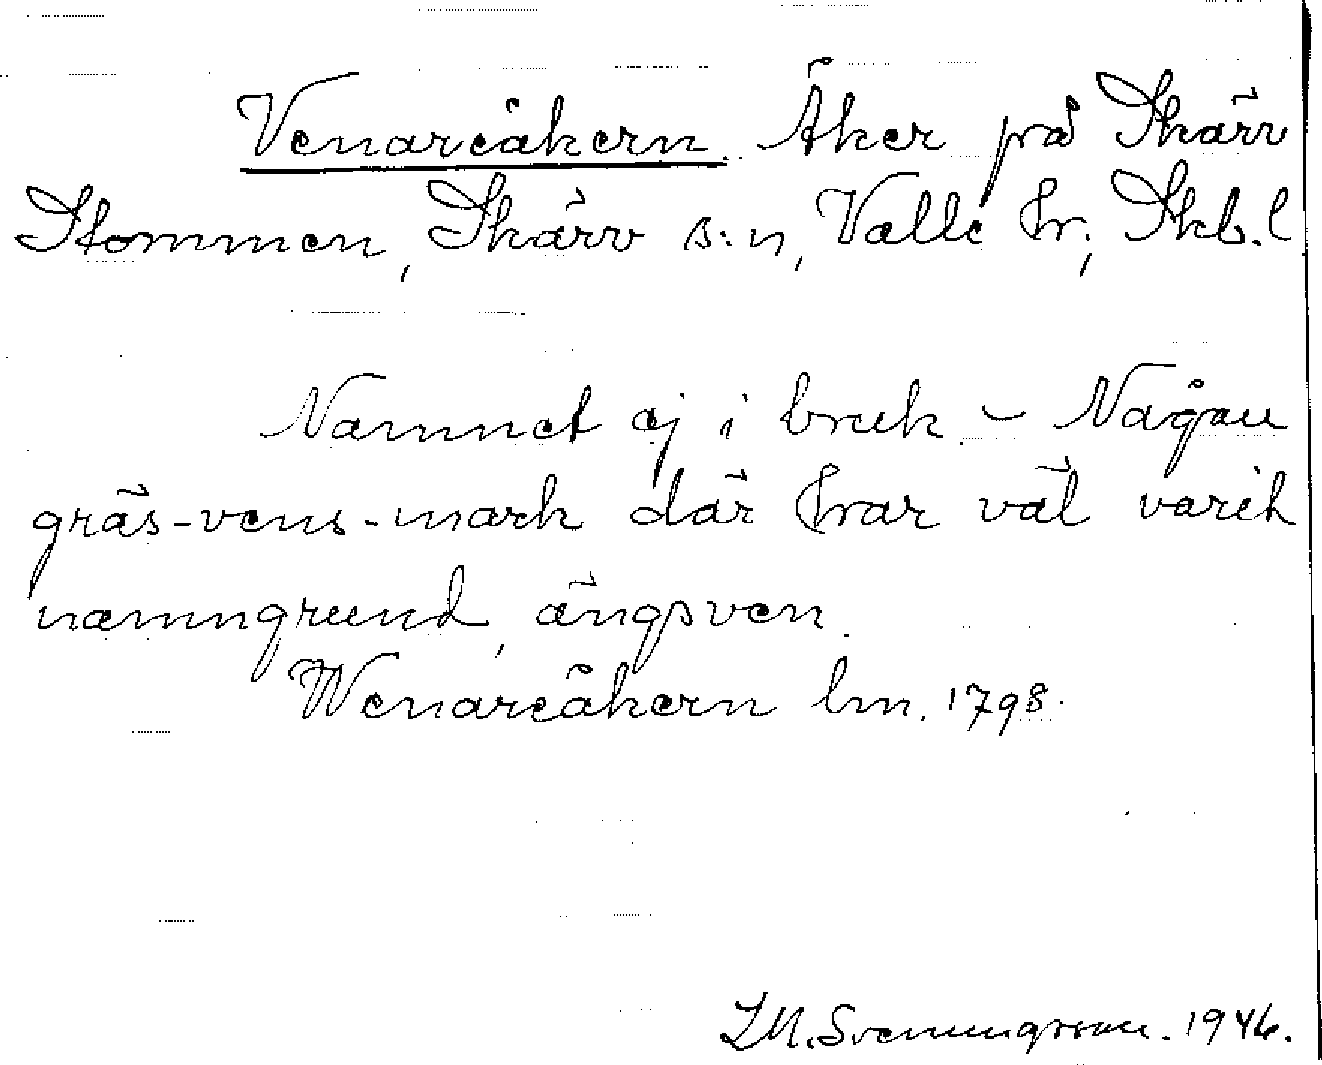 Venareåkern. Åker på Skärv
Stommen, Skärv s:n, Valle hr; Skb. l
Namnet ej i bruk – Någon
gräs-vens-mark där har väl varit
namngrund, ängsven.
Wenareåkern lm. 1798.
I.M. Svenungsson. 1946.